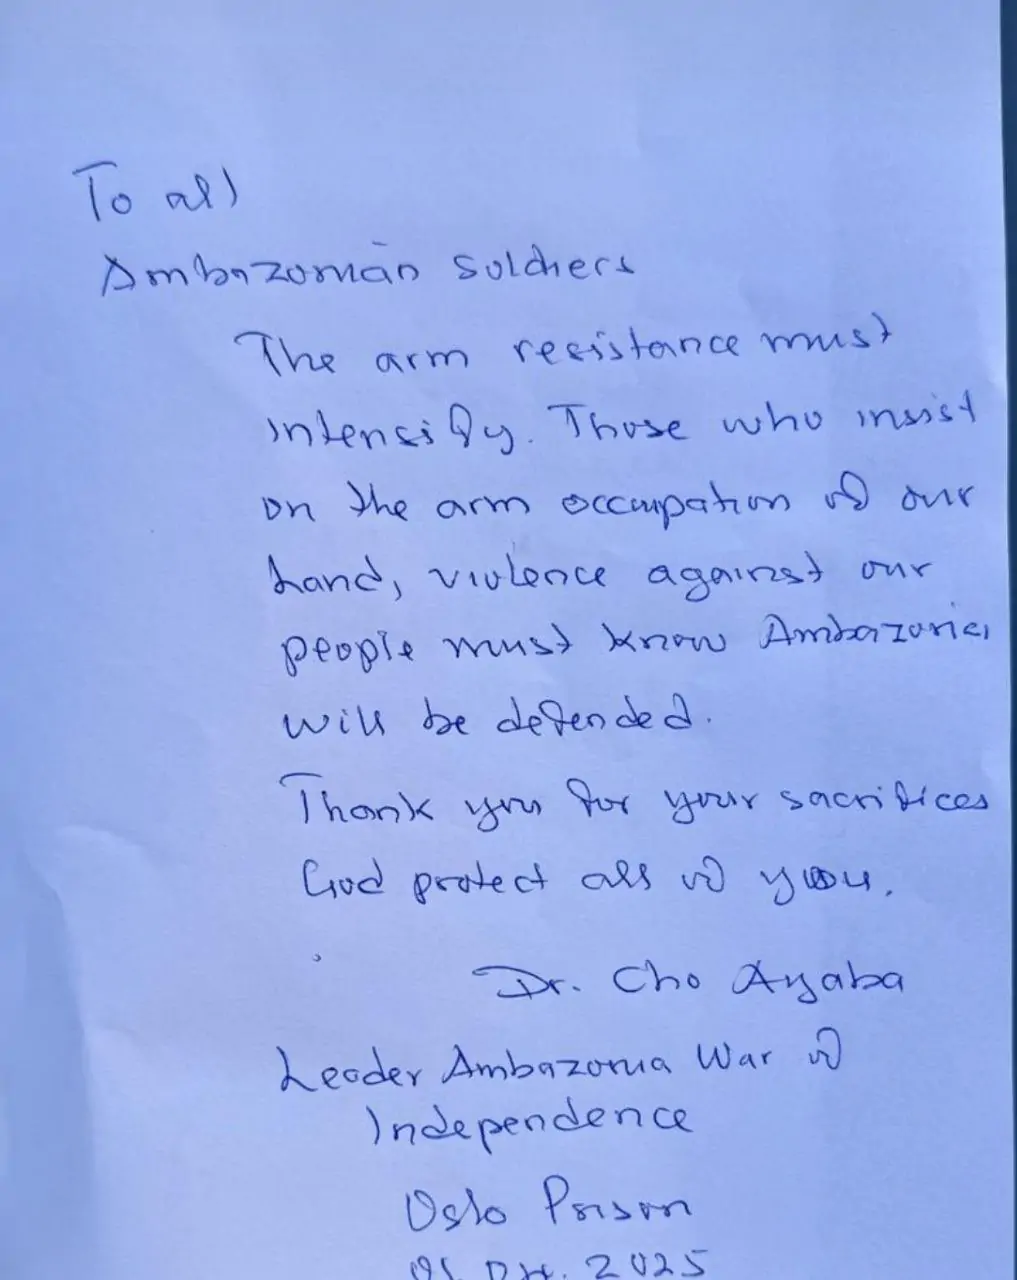 To all
Ambazonian soldiers
The arm resistance must
intensify. Those who insist
on the arm occupation of our
Land, violence against our
people must know Ambazonia
will be defended.
Thank you for your sacrifices
God protect all of you.
Dr. Cho Ayaba
Leader Ambazonia War of
Independence
Oslo Prison
2025